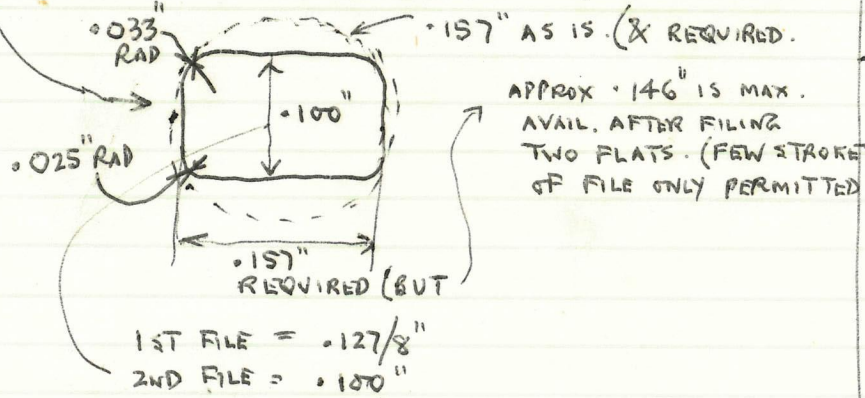 .033"
RAD
.157" AS IS. (& REQUIRED.
.100"
APPROX .146" IS MAX.
AVAIL. AFTER FILING
TWO FLATS. (FEW STROKE
OF FILE ONLY PERMITTED
.025" RAD
.157"
REQUIRED (BUT
1ST FILE = .127/8"
2ND FILE = .100"